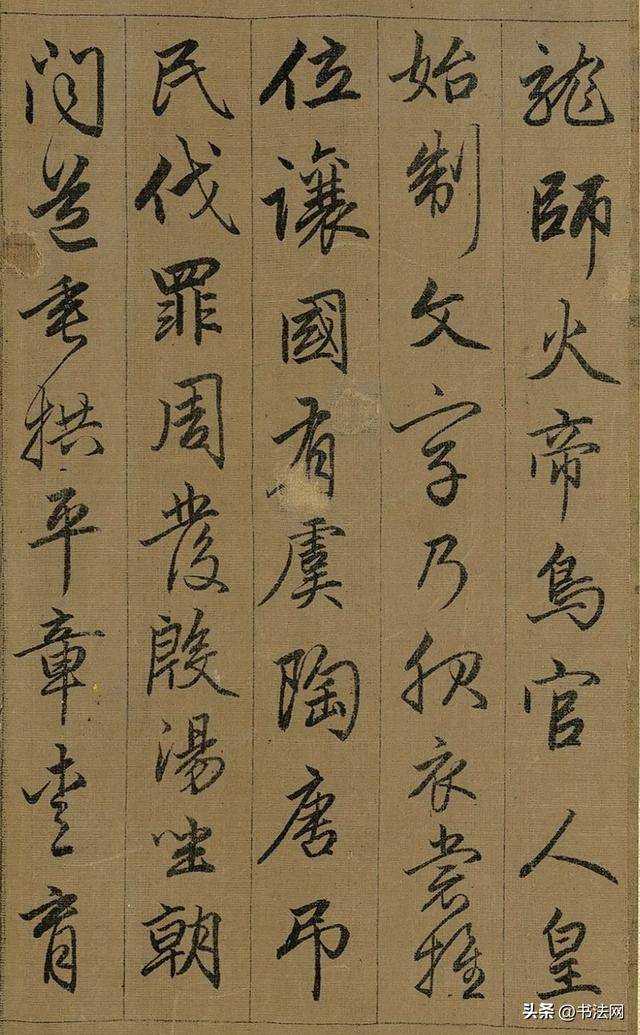 龍師火帝鳥官人皇
始制文字乃服衣裳推
位讓國有虞陶唐弔
民伐罪周發殷湯坐朝
問道垂拱平章愛育
头条 @书法网